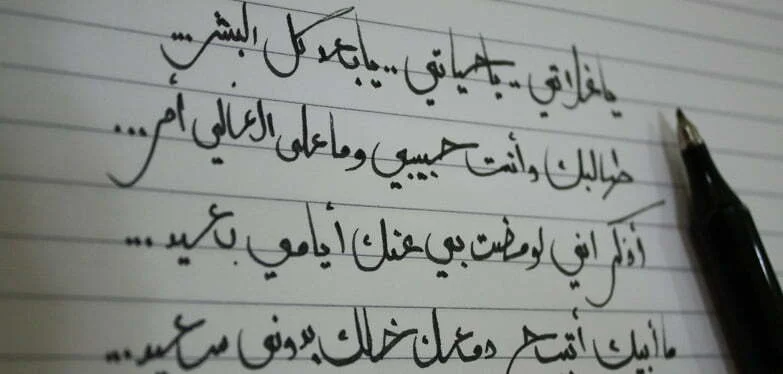 ياغلاتي .. ياحياتي .. يابعد كل البشر ...
طالبك وأنت حبيبي وما على الغالي أمر ...
أذكر اني لو مضت بي عنك أيامي بعيد ...
ما أبيك دمعك خلك بدوني سعيد ...